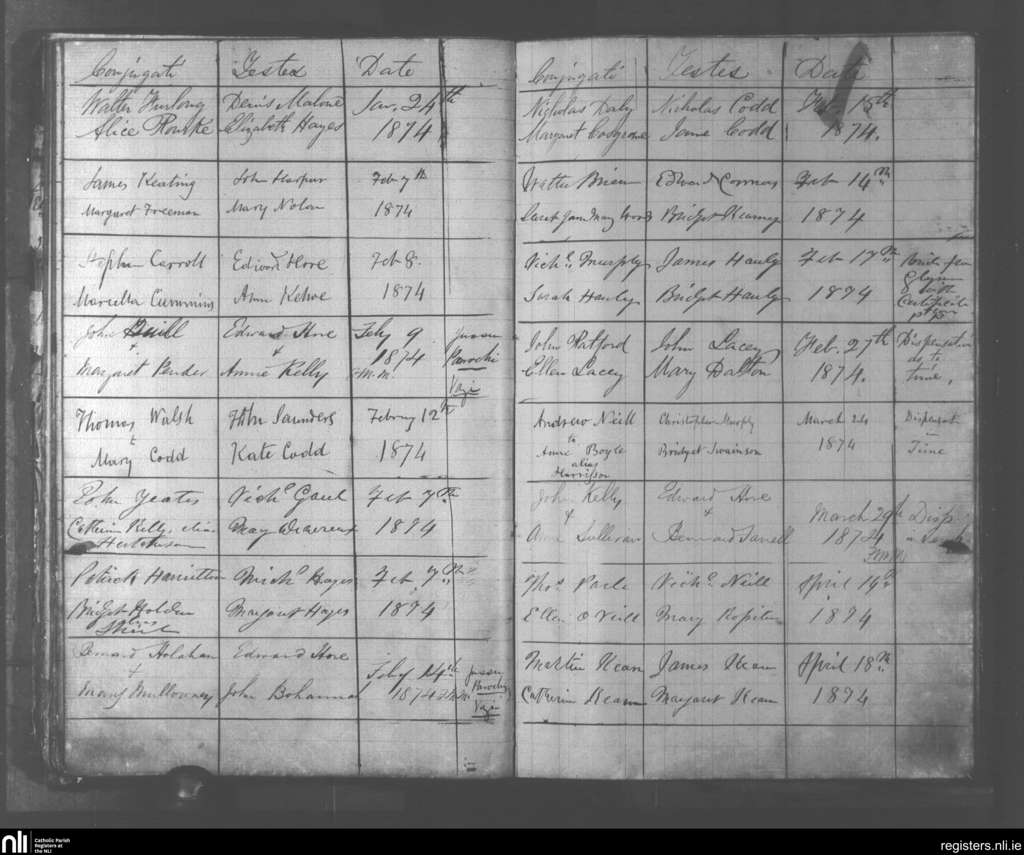 Conjugati Testes Date
Walter Furlong Denis Malone Jan. 24th
Alice Rourke Elizabeth Hayes 1874
James Keating John Harpur Feb 7th
Margaret Freeman Mary Nolan 1874
Stephen Carroll Edward Hore Feb 8.
Mariella Cummins Ann Kehoe 1874
John Quill Edward Hore Feby 9
+ + 1874
Margaret Pender Annie Kelly J.M.M. Parochi
Vagi
Thomas Walsh John Saunders February 12th
Mary Codd Kate Codd 1874
John Yeates Richd Gaul Feb 7th
Catherine Kelly alias May 1874
Hutchinson
Patrick Michl Hayes Feb 7th
Bridget Holden Margaret Hayes 1874
Bernard Holahan Edward Hore
+ Feby 14th
Mary Mullowney John Bohannal 1874 Parochi
Vagi
Conjugati Testes Date
Nicholas Daly Nicholas Codd Feb. 15th
Margaret Cosgrave Jane Codd 1874.
Walter Brien Edward Connors Feb 14th
Sarah Jane May Bridget Kearney 1874
Richd Murphy James Hanly Feb 17th
Glynn
Sarah Hanly Bridget Hanly 1874 & with
Certificate
John Ratford John Lacey Feb. 27th Dispensation
as to
Ellen Lacey Mary Dalton 1874. time.
Andrew Neill Christopher Murphy March Dispensat
to 1874 in
Anne Boyle Bridget Swainson Time
alias
Harrisson
John Kelly Edward Hore
+ March 29th Disp
Ann Sullivan Bernard Farrell 1874
Thos Parle Richd Neill April 14th
Ellen O Neill Mary 1874
Martin Kean James Kean April 18th
Catherine Keane Margaret Kean 1874
nli Catholic Parish
Registers at
the NLI
registers.nli.ie